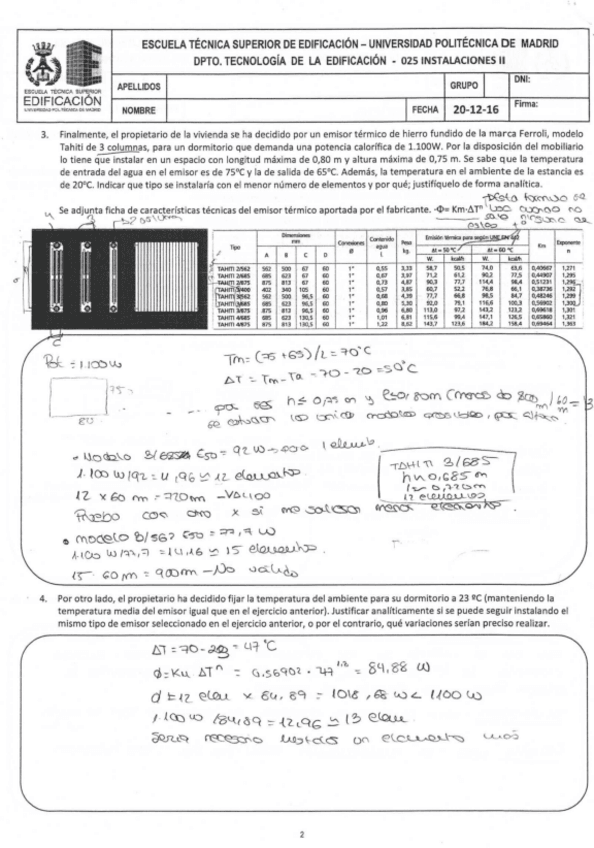 ESCUELA TÉCNICA SUPERIOR DE EDIFICACIÓN – UNIVERSIDAD POLITÉCNICA DE MADRID
DPTO. TECNOLOGÍA DE LA EDIFICACIÓN - 025 INSTALACIONES II
ESCUELA TÉCNICA SUPERIOR
EDIFICACIÓN
UNIVERSIDAD POLITÉCNICA DE MADRID
APELLIDOS GRUPO DNI:
NOMBRE FECHA 20-12-16 Firma:
3. Finalmente, el propietario de la vivienda se ha decidido por un emisor térmico de hierro fundido de la marca Ferroli, modelo
Tahiti de 3 columnas, para un dormitorio que demanda una potencia calorífica de 1.100W. Por la disposición del mobiliario
lo tiene que instalar en un espacio con longitud máxima de 0,80 m y altura máxima de 0,75 m. Se sabe que la temperatura
de entrada del agua en el emisor es de 75ºC y la de salida de 65ºC. Además, la temperatura en el ambiente de la estancia es
de 20ºC. Indicar que tipo se instalaría con el menor número de elementos y por qué; justifíquelo de forma analítica.
Se adjunta ficha de características técnicas del emisor térmico aportada por el fabricante. -Φ= Km·ΔTⁿ
Tipo Dimensiones mm Conexiones Ø Contenido agua l Peso kg Emisión térmica por según UNE EN 442 Km Exponente n
A B C D Δt = 50 ºC Δt = 60 ºC
W. kcal/h W. kcal/h
TAHITI 2/562 562 500 67 60 1" 0,55 3,33 58,7 50,5 74,0 63,6 0,40687 1,271
TAHITI 2/685 685 623 67 60 1" 0,67 3,97 71,2 61,2 90,2 77,5 0,44907 1,295
TAHITI 2/875 875 813 67 60 1" 0,73 4,87 90,3 77,7 114,4 98,4 0,51231
TAHITI 3/400 402 340 105 60 1" 0,57 3,85 60,7 52,2 76,8 66,1 0,38736 1,292
TAHITI 3/562 562 500 98,5 60 1" 0,68 4,39 77,7 66,8 98,5 84,7 0,48246 1,299
TAHITI 3/685 685 623 98,5 60 1" 0,80 5,30 92,0 79,1 116,6 100,3 0,56902 1,300
TAHITI 3/875 875 813 98,5 60 1" 0,96 6,80 113,0 97,2 143,2 123,2 0,69618 1,301
TAHITI 4/685 685 623 130,5 60 1" 1,01 6,81 115,6 99,4 147,1 126,5 0,65860 1,321
TAHITI 4/875 875 813 130,5 60 1" 1,22 8,62 143,7 123,6 184,2 158,4 0,69464 1,363
Pot = 1.100 W
Tm = (75 + 65)/2 = 70°C
ΔT = Tm - Ta = 70 - 20 = 50°C
75
80
- Modelo 3/685 E50 = 92 W
1.100 W/92 = 11,96 ≃ 12 elementos.
12 x 60 m = 720m - VALIDO
Pruebo con otro x si me salieran menos elementos.
TAHITI 3/685
h = 0,685 m
l = 0,720m
12 elementos
• modelo 3/562 E50 = 77,7 W
1.100 W/77,7 = 14,16 ≃ 15 elementos.
15 · 60 m = 900m - No valido
4. Por otro lado, el propietario ha decidido fijar la temperatura del ambiente para su dormitorio a 23 ºC (manteniendo la
temperatura media del emisor igual que en el ejercicio anterior). Justificar analíticamente si se puede seguir instalando el
mismo tipo de emisor seleccionado en el ejercicio anterior, o por el contrario, qué variaciones serían preciso realizar.
ΔT = 70 - 23 = 47 °C
Φ = Km ΔTⁿ = 0,56902 · 47^1,3 = 84,88 W
12 elem x 84,89 = 1018,68 W < 1100 W
1.100 W /84,89 = 12,96 ≃ 13 elem.
Seria necesario un elemento más
2